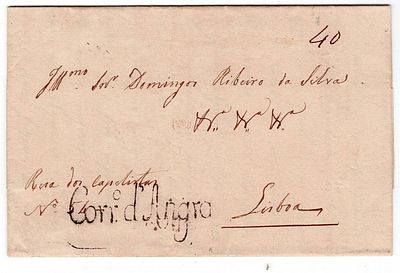 40
Illmo. Snr. Domingos Ribeiro da Silva
Nra Nra Nra
Rua dos Capelistas
No
Corr.o d'Angra
Lisboa